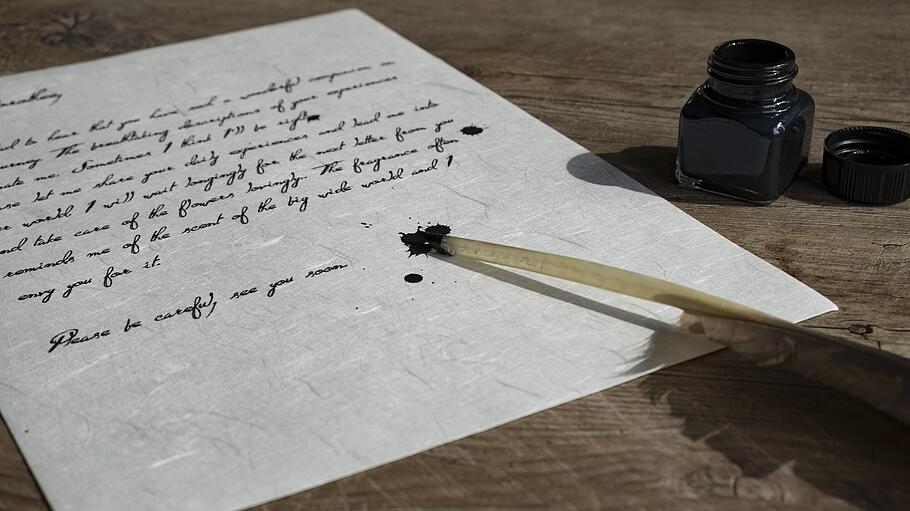 to hear that you have had a wonderful companion on
The breathtaking descriptions of your experiences
me. Sometimes I think I'll be right
let me share your daily experiences and lead me into
world I will wait longingly for the next letter from you
and take care of the flowers lovingly. The fragrance often
reminds me of the scent of the big wide world and I
envy you for it.
Please be careful, see you soon